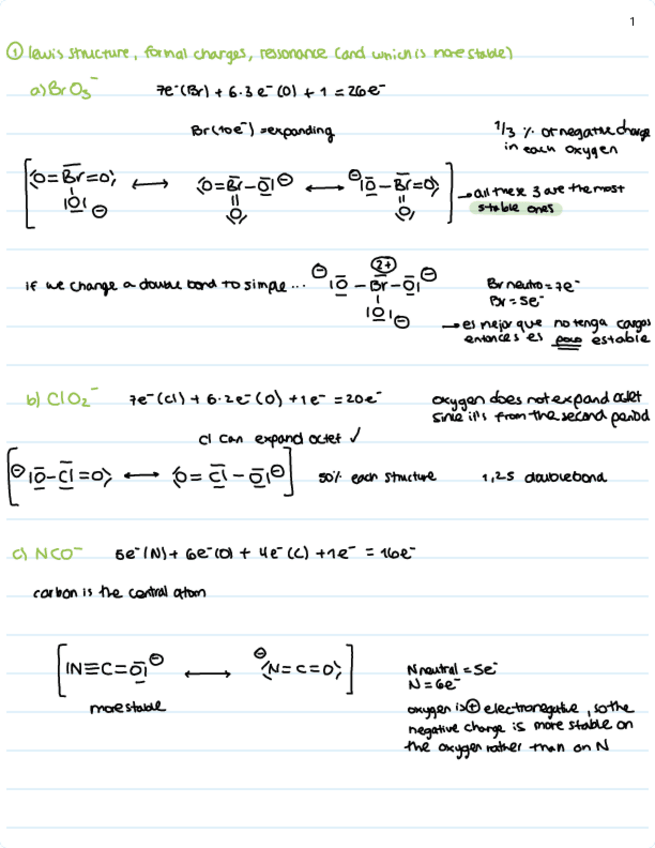 1
① lewis structure, formal charges, resonance (and which is more stable)
a) BrO₃⁻ 7e⁻(Br) + 6·3e⁻(O) + 1 = 26e⁻
Br(10e⁻) → expanding
1/3 % of negative charge
in each oxygen
⟨O=Br=O⟩ ⟷ ⟨O=Br-O|⊖ ⟷ ⊖|O-Br=O⟩
|O| ⊖ ⟨O⟩ ⟨O⟩
→ all these 3 are the most
stable ones
if we change a double bond to simple... ⊖|O-Br-O|⊖
2+
|O|⊖
Br neutro = 7e⁻
Br = 5e⁻
→ es mejor que no tenga cargas
entonces es poco estable
b) ClO₂⁻ 7e⁻(Cl) + 6·2e⁻(O) + 1e⁻ = 20e⁻
oxygen does not expand octet
since it's from the second period
Cl can expand octet ✓
[⊖|O-Cl=O⟩ ⟷ ⟨O=Cl-O|⊖] 50% each structure 1,25 doublebond
c) NCO⁻ 5e⁻(N) + 6e⁻(O) + 4e⁻(C) + 1e⁻ = 16e⁻
carbon is the central atom
[|N≡C=O|⊖ ⟷ ⊖⟨N=C=O⟩]
more stable
N neutral = 5e⁻
N = 6e⁻
oxygen is ⊕ electronegative, so the
negative charge is more stable on
the oxygen rather than on N